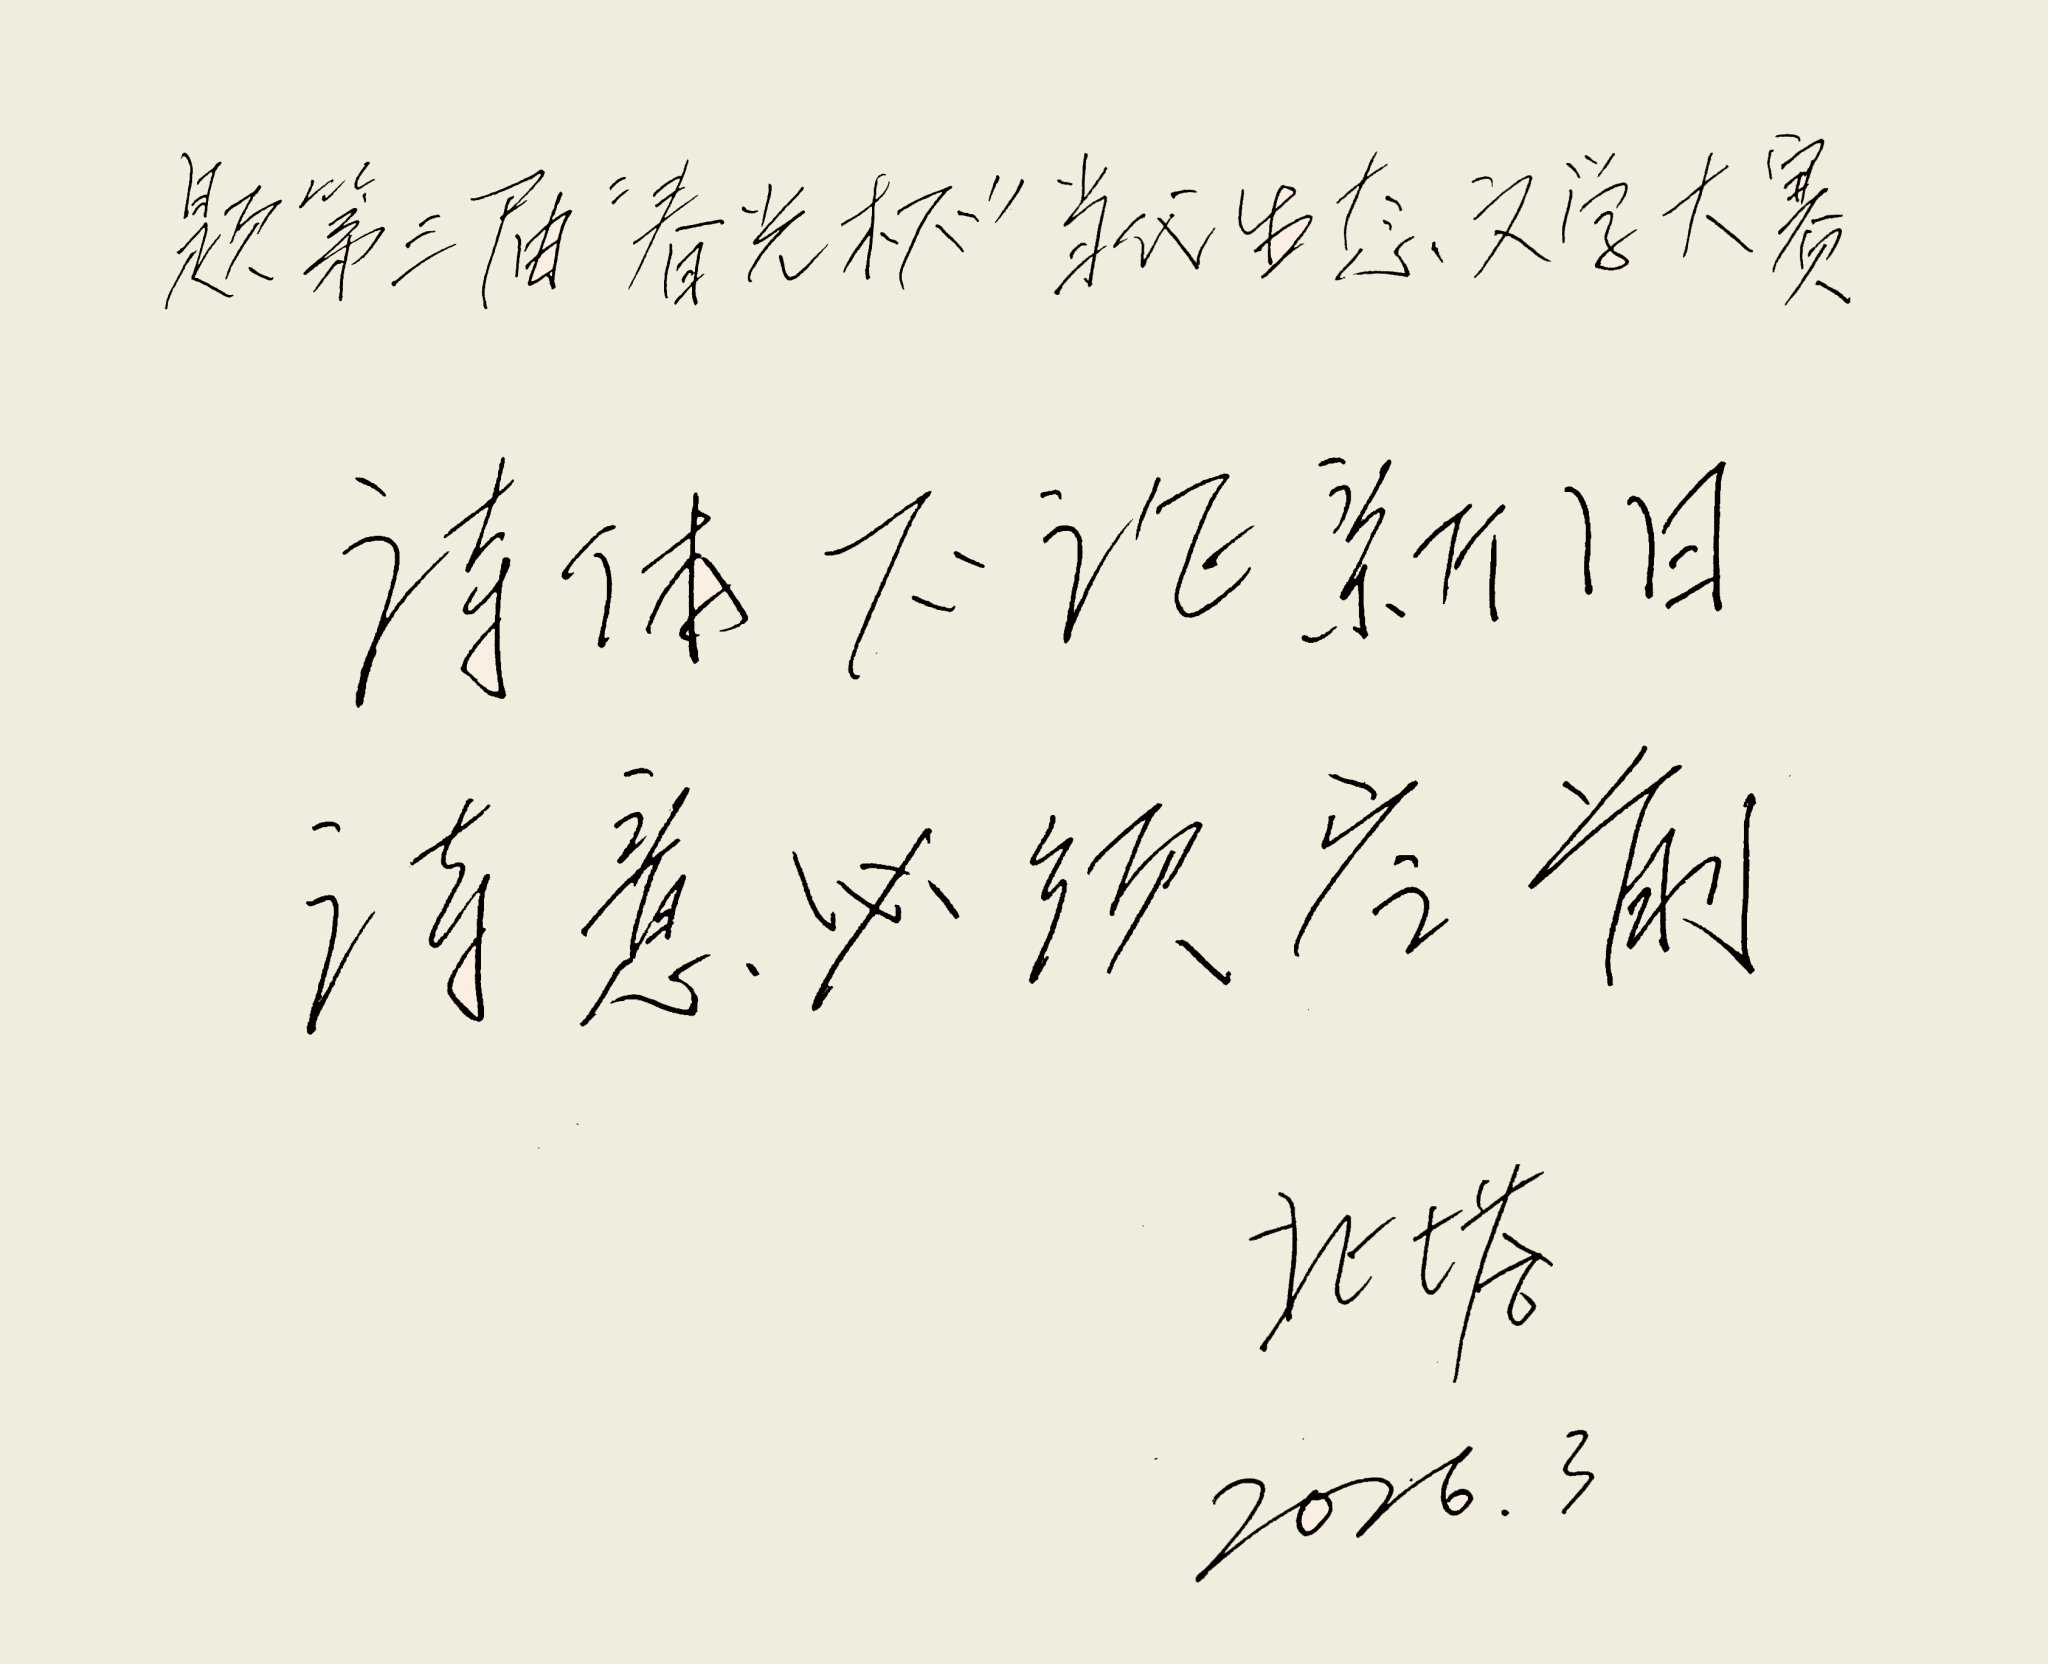 题第三届“春光杯”当代生态文学大赛
诗体不论新旧
诗意必须空前
北塔
2026.3